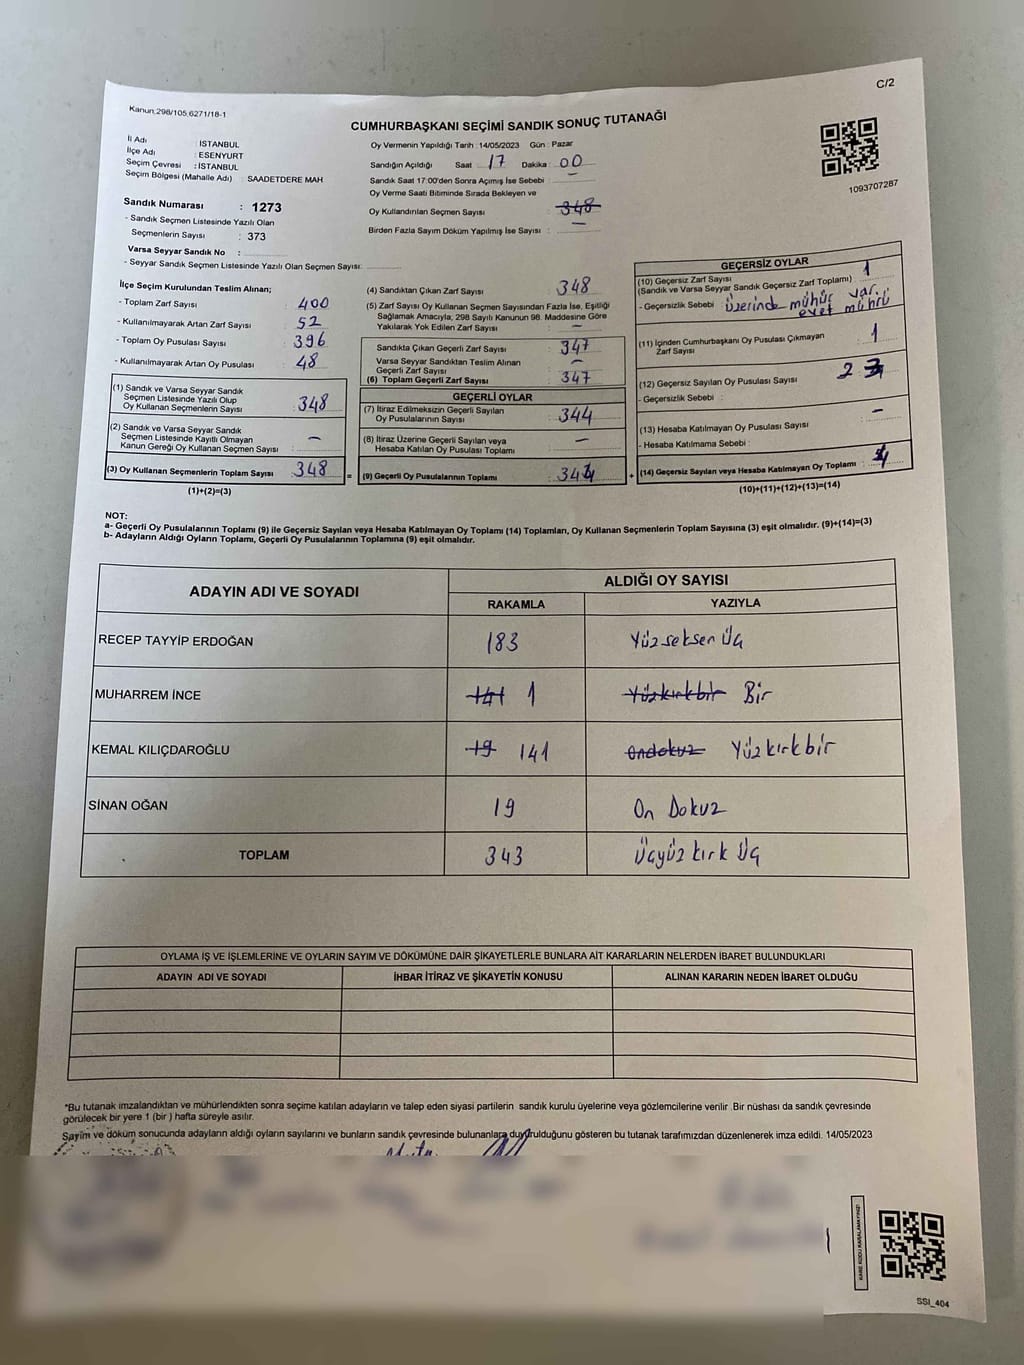 C/2
Kanun.298/105,6271/18-1
CUMHURBAŞKANI SEÇİMİ SANDIK SONUÇ TUTANAĞI
İl Adı : İSTANBUL
İlçe Adı : ESENYURT
Seçim Çevresi : İSTANBUL
Seçim Bölgesi (Mahalle Adı) : SAADETDERE MAH
Sandık Numarası : 1273
- Sandık Seçmen Listesinde Yazılı Olan
Seçmenlerin Sayısı : 373
Varsa Seyyar Sandık No :
- Seyyar Sandık Seçmen Listesinde Yazılı Olan Seçmen Sayısı:
Oy Vermenin Yapıldığı Tarih : 14/05/2023 Gün : Pazar
Sandığın Açıldığı Saat 17 Dakika : 00
Sandık Saat 17:00'den Sonra Açımış İse Sebebi : —
Oy Verme Saati Bitiminde Sırada Bekleyen ve
Oy Kullandırılan Seçmen Sayısı : 348
Birden Fazla Sayım Döküm Yapılmış İse Sayısı : —
1093707287
İlçe Seçim Kurulundan Teslim Alınan;
- Toplam Zarf Sayısı : 400
- Kullanılmayarak Artan Zarf Sayısı : 52
- Toplam Oy Pusulası Sayısı : 396
- Kullanılmayarak Artan Oy Pusulası : 48
(1) Sandık ve Varsa Seyyar Sandık
Seçmen Listesinde Yazılı Olup
Oy Kullanan Seçmenlerin Sayısı : 348
(2) Sandık ve Varsa Seyyar Sandık
Seçmen Listesinde Kayıtlı Olmayan
Kanun Gereği Oy Kullanan Seçmen Sayısı : —
(3) Oy Kullanan Seçmenlerin Toplam Sayısı : 348 =
(1)+(2)=(3)
(4) Sandıktan Çıkan Zarf Sayısı : 348
(5) Zarf Sayısı Oy Kullanan Seçmen Sayısından Fazla İse, Eşitliği
Sağlamak Amacıyla, 298 Sayılı Kanunun 98. Maddesine Göre
Yakılarak Yok Edilen Zarf Sayısı : —
Sandıkta Çıkan Geçerli Zarf Sayısı : 347
Varsa Seyyar Sandıktan Teslim Alınan
Geçerli Zarf Sayısı : —
(6) Toplam Geçerli Zarf Sayısı : 347
GEÇERLİ OYLAR
(7) İtiraz Edilmeksizin Geçerli Sayılan
Oy Pusulalarının Sayısı : 344
(8) İtiraz Üzerine Geçerli Sayılan veya
Hesaba Katılan Oy Pusulası Toplamı : —
(9) Geçerli Oy Pusulalarının Toplamı : 344 +
GEÇERSİZ OYLAR
(10) Geçersiz Zarf Sayısı : 1
(Sandık ve Varsa Seyyar Sandık Geçersiz Zarf Toplamı)
- Geçersizlik Sebebi : üzerinde mühür var.
evet mührü
(11) İçinden Cumhurbaşkanı Oy Pusulası Çıkmayan
Zarf Sayısı : 1
(12) Geçersiz Sayılan Oy Pusulası Sayısı : 2
- Geçersizlik Sebebi :
(13) Hesaba Katılmayan Oy Pusulası Sayısı : —
- Hesaba Katılmama Sebebi :
(14) Geçersiz Sayılan veya Hesaba Katılmayan Oy Toplamı : 4
(10)+(11)+(12)+(13)=(14)
NOT:
a- Geçerli Oy Pusulalarının Toplamı (9) ile Geçersiz Sayılan veya Hesaba Katılmayan Oy Toplamı (14) Toplamları, Oy Kullanan Seçmenlerin Toplam Sayısına (3) eşit olmalıdır. (9)+(14)=(3)
b- Adayların Aldığı Oyların Toplamı, Geçerli Oy Pusulalarının Toplamına (9) eşit olmalıdır.
ADAYIN ADI VE SOYADI ALDIĞI OY SAYISI
RAKAMLA YAZIYLA
RECEP TAYYİP ERDOĞAN 183 Yüzseksen Üç
MUHARREM İNCE 141 1 Yüzkırkbir Bir
KEMAL KILIÇDAROĞLU 19 141 Ondokuz Yüzkırkbir
SİNAN OĞAN 19 On Dokuz
TOPLAM 343 Üçyüz kırk Üç
OYLAMA İŞ VE İŞLEMLERİNE VE OYLARIN SAYIM VE DÖKÜMÜNE DAİR ŞİKAYETLERLE BUNLARA AİT KARARLARIN NELERDEN İBARET BULUNDUKLARI
ADAYIN ADI VE SOYADI İHBAR İTİRAZ VE ŞİKAYETİN KONUSU ALINAN KARARIN NEDEN İBARET OLDUĞU
*Bu tutanak imzalandıktan ve mühürlendikten sonra seçime katılan adayların ve talep eden siyasi partilerin sandık kurulu üyelerine veya gözlemcilerine verilir .Bir nüshası da sandık çevresinde
görülecek bir yere 1 (bir ) hafta süreyle asılır.
Sayım ve döküm sonucunda adayların aldığı oyların sayılarını ve bunların sandık çevresinde bulunanlara duyurulduğunu gösteren bu tutanak tarafımızdan düzenlenerek imza edildi. 14/05/2023
KARE KODU KARALAMAYINIZ!
SSI_404